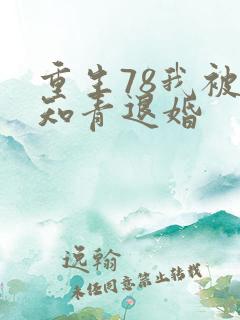 重生78我被
知青退婚
逸翰
未经同意禁止转载